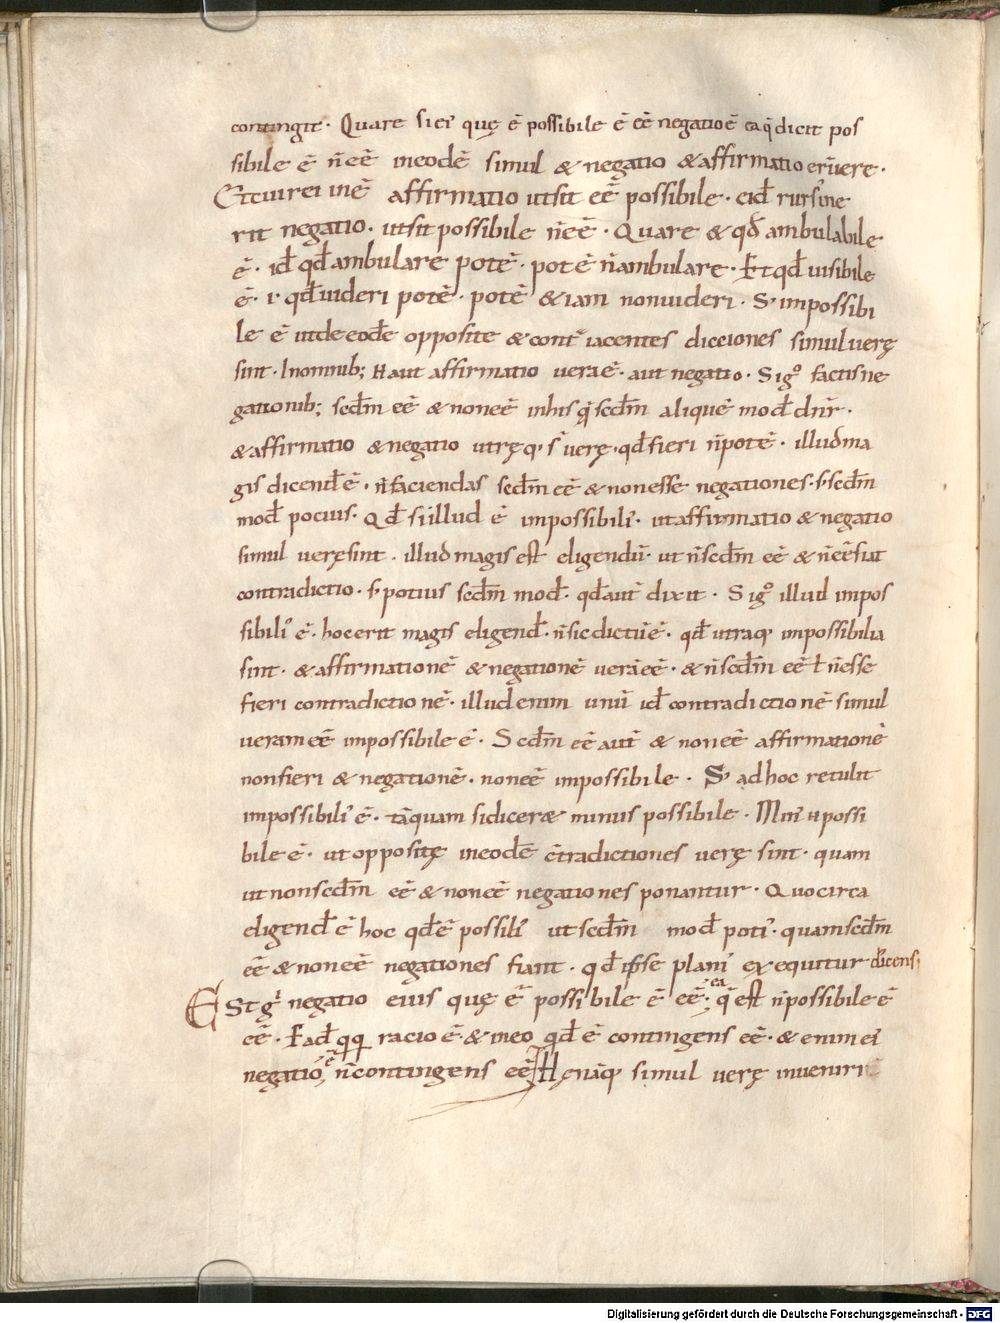 contingit· Quare si ei quę ē possibile ē eē negatio ē ea q̄ dicit pos
sibile ē n̄ eē in eodē simul & negatio & affirmatio er̄ vere·
affirmatio ut sit eē possibile· eid̄ rursus
rit negatio· ut sit possibile n̄ eē· Quare & qđ ambulabile
ē· id̄ qđ ambulare potē· potē n̄ ambulare· Et qđ visibile
ē· i· qđ uideri potē· potē & iam non uideri· S· impossibi
le ē ut de eodē opposite & cont̄ iacentes dicciones simul verę
sint· In omnib; aut affirmatio vera ē· aut negatio· Sigº factis ne
gationib; scdm̄ eē & non eē in his q̄ scdm̄ aliquē mod̄ dn̄r·
& affirmatio & negatio utręq· s̄ verę· qđ fieri n̄ potē· illud ma
gis dicend̄ ē· n̄ faciendas scdm̄ eē & non esse negationes· s· scdm̄
mod̄ pocius· Qđ si illud ē impossibili'· ut affirmatio & negatio
simul verę sint· illud magis est eligendū· ut n̄ scdm̄ eē & n̄ eē fiat
contradictio· s· potius scdm̄ mod̄· qđ aut̄ dixit· Sigº illud impos
sibili' ē· hoc erit magis eligend̄· n̄ sic dictū ē· qđ utraq impossibilia
sint· & affirmationē & negationē verā eē· & n̄ scdm̄ eē ł n̄ esse
fieri contradictionē· illud enim unū id̄ contradictionē simul
veram eē impossibile ē· Scdm̄ eē aut̄ & non eē affirmationē
non fieri & negationē· non eē impossibile· S· ad hoc retulit
impossibili' ē· tāquam si dicer& minus possibile· Min' possi
bile ē· ut oppositę in eodē c̄tradictiones verę sint· quam
ut non scdm̄ eē & non eē negationes ponantur· Quocirca
eligend̄ ē hoc qđ ē possibi' ut scdm̄ mod̄ poti'· quam scdm̄
eē & non eē negationes fiant· qđ ipse plani' exequitur dicens;
Est g̊ negatio eius quę ē possibile ē eē· ea q̄ est n̄ possibile ē
eē· Ead̄ qq racio ē· & in eo qđ ē contingens eē· & enim ei'
negatio ē n̄ contingens eē Hę nāq simul verę inueniri
Digitalisierung gefördert durch die Deutsche Forschungsgemeinschaft - DFG